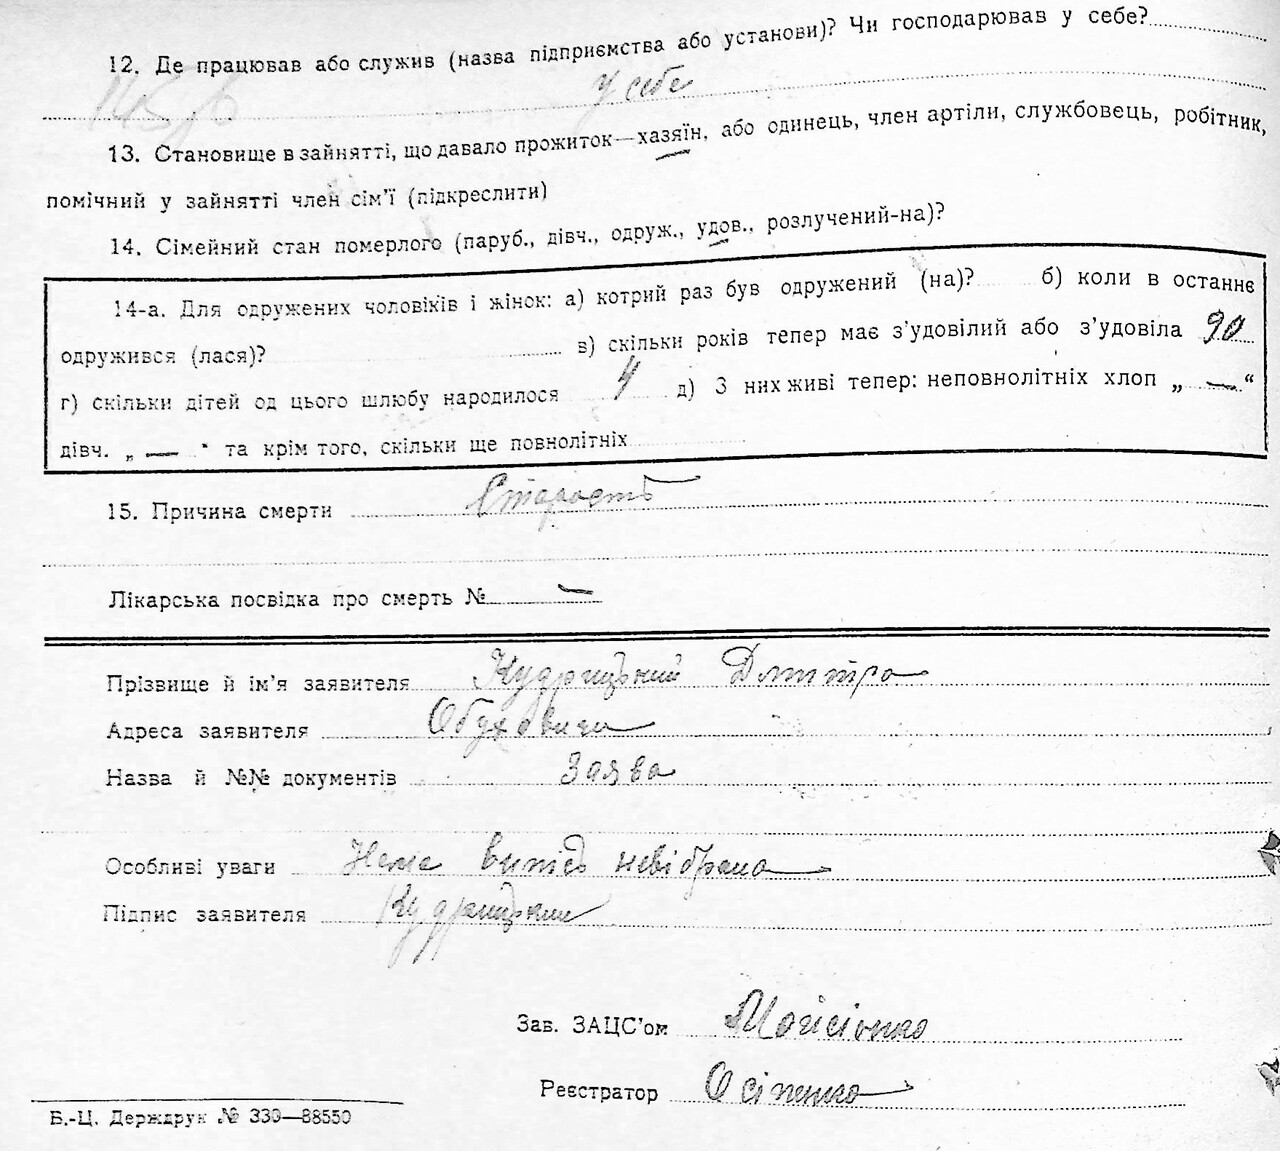 12. Де працював або служив (назва підприємства або установи)? Чи господарював у себе?
У себе
13. Становище в зайнятті, що давало прожиток—хазяїн, або одинець, член артіли, службовець, робітник,
помічний у зайнятті член сім'ї (підкреслити)
14. Сімейний стан померлого (паруб., дівч., одруж., удов., розлучений-на)?
14-а. Для одружених чоловіків і жінок: а) котрий раз був одружений (на)? б) коли в останнє
одружився (лася)? в) скільки років тепер має з'удовілий або з'удовіла 90
г) скільки дітей од цього шлюбу народилося 4 д) З них живі тепер: неповнолітніх хлоп „ — “
дівч. „ — “ та крім того, скільки ще повнолітніх
15. Причина смерти Старость
Лікарська посвідка про смерть № —
Прізвище й ім'я заявителя Кудрицький Дмитро
Адреса заявителя Обуховичи
Назва й №№ документів Заява
Особливі уваги Нема випісь невібрана
Підпис заявителя Кудрицький
Зав. ЗАЦС'ом
Реєстратор Осіпенко
Б.-Ц. Держдрук № 330—88550